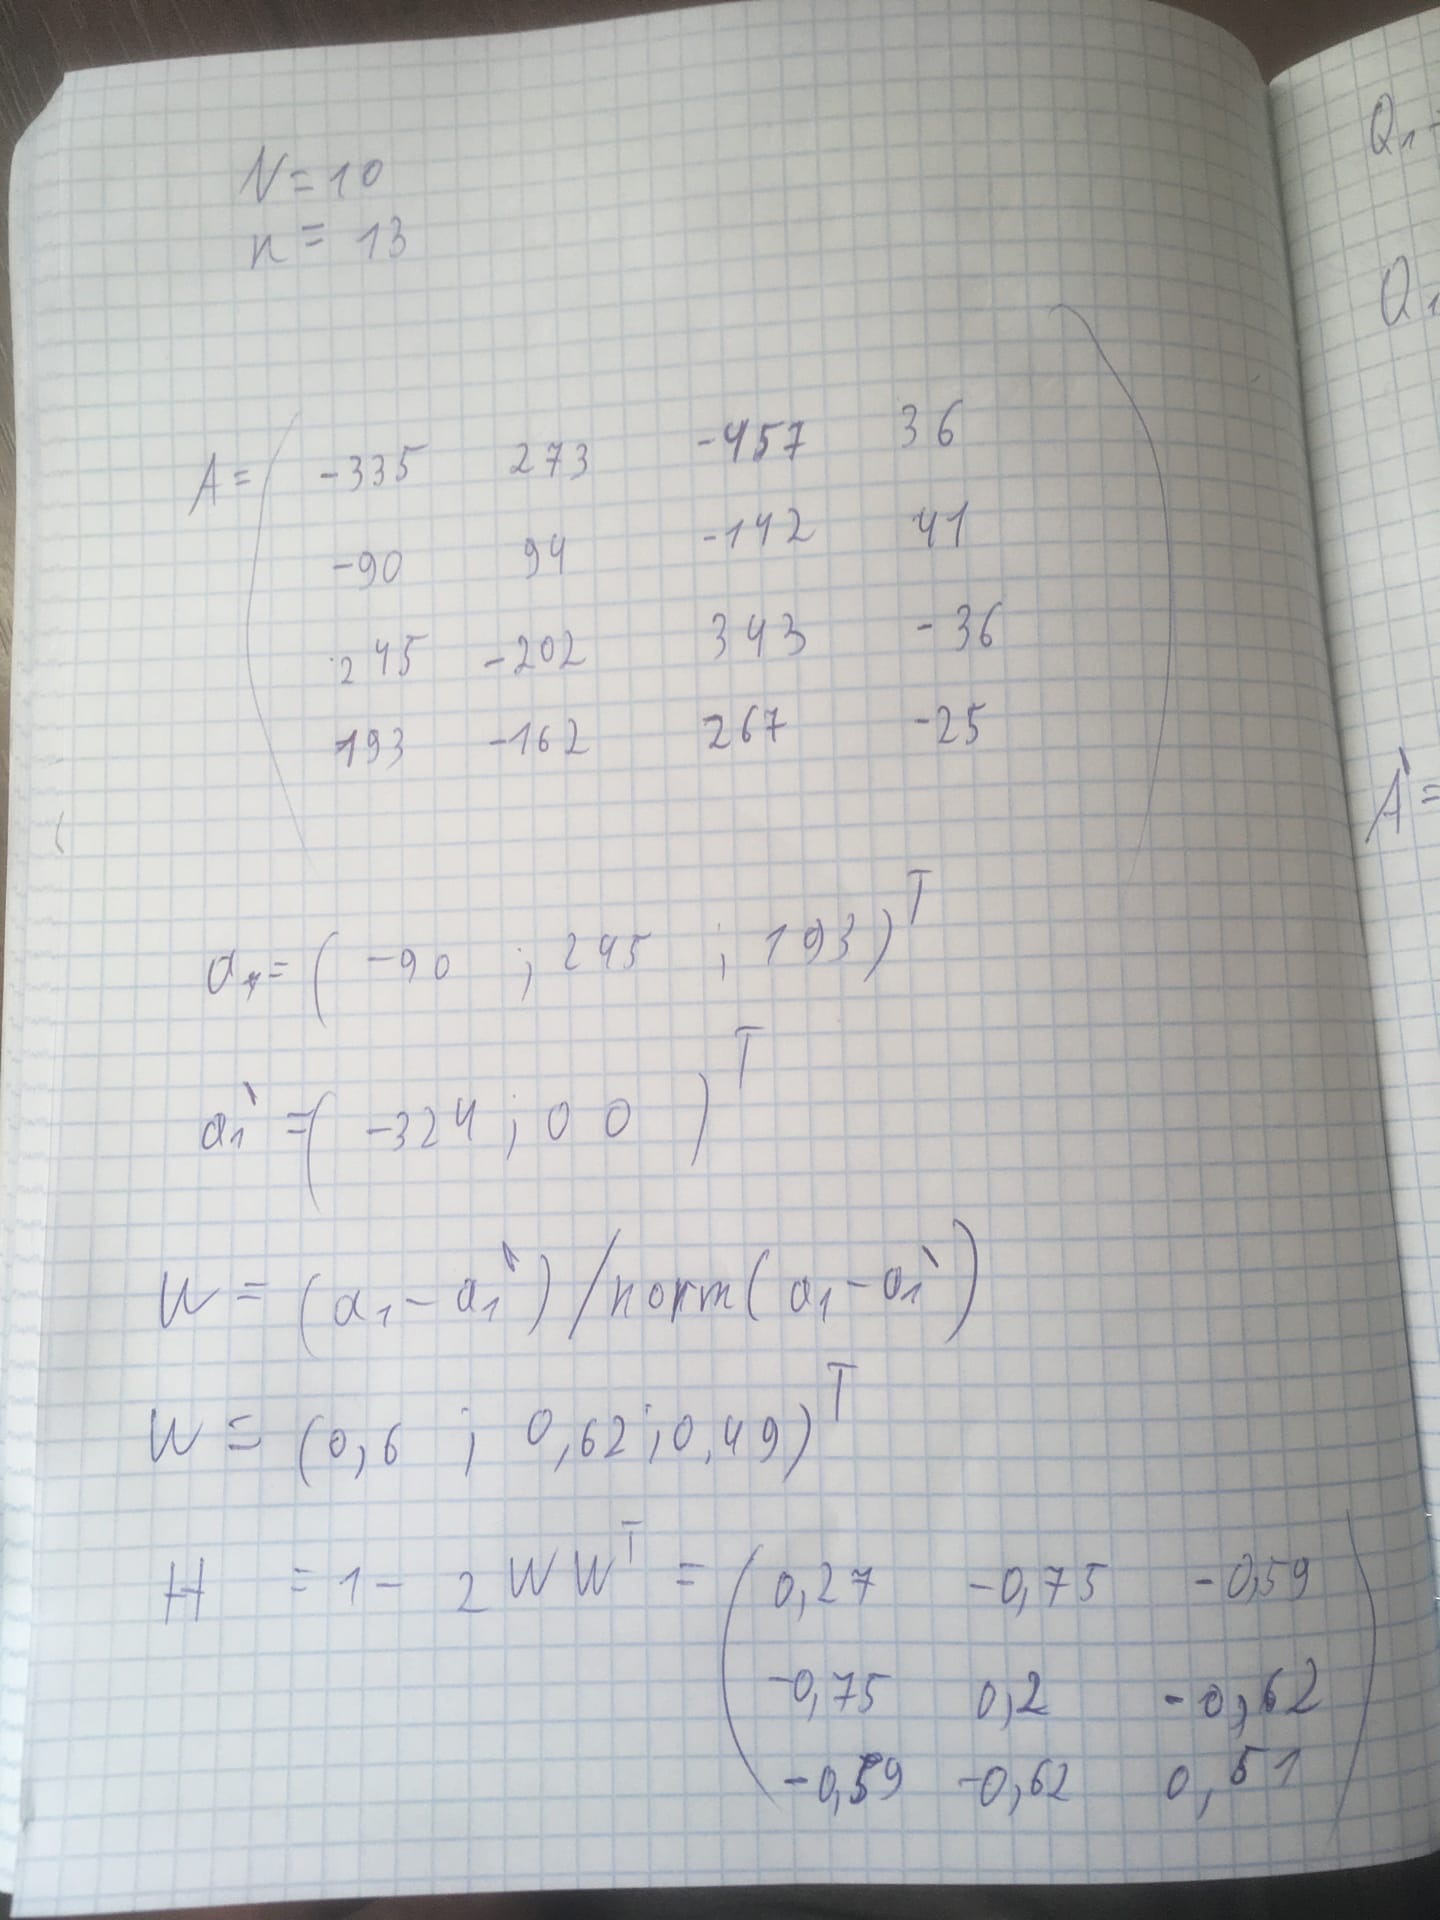 N=10
n=13
A= ( -335 273 -457 36
-90 94 -142 41
245 -202 343 -36
193 -162 267 -25 )
a₁=( -90 ; 245 ; 193)ᵀ
a₁` =( -324 ; 0 0 )ᵀ
W = (a₁-a₁`)/norm(a₁-a₁`)
W = (0,6 ; 0,62;0,49)ᵀ
H = 1 - 2WWᵀ = ( 0,27 -0,75 -0,59
-0,75 0,2 -0,62
-0,59 -0,62 0,51 )
Q₁
Q₁
A`=